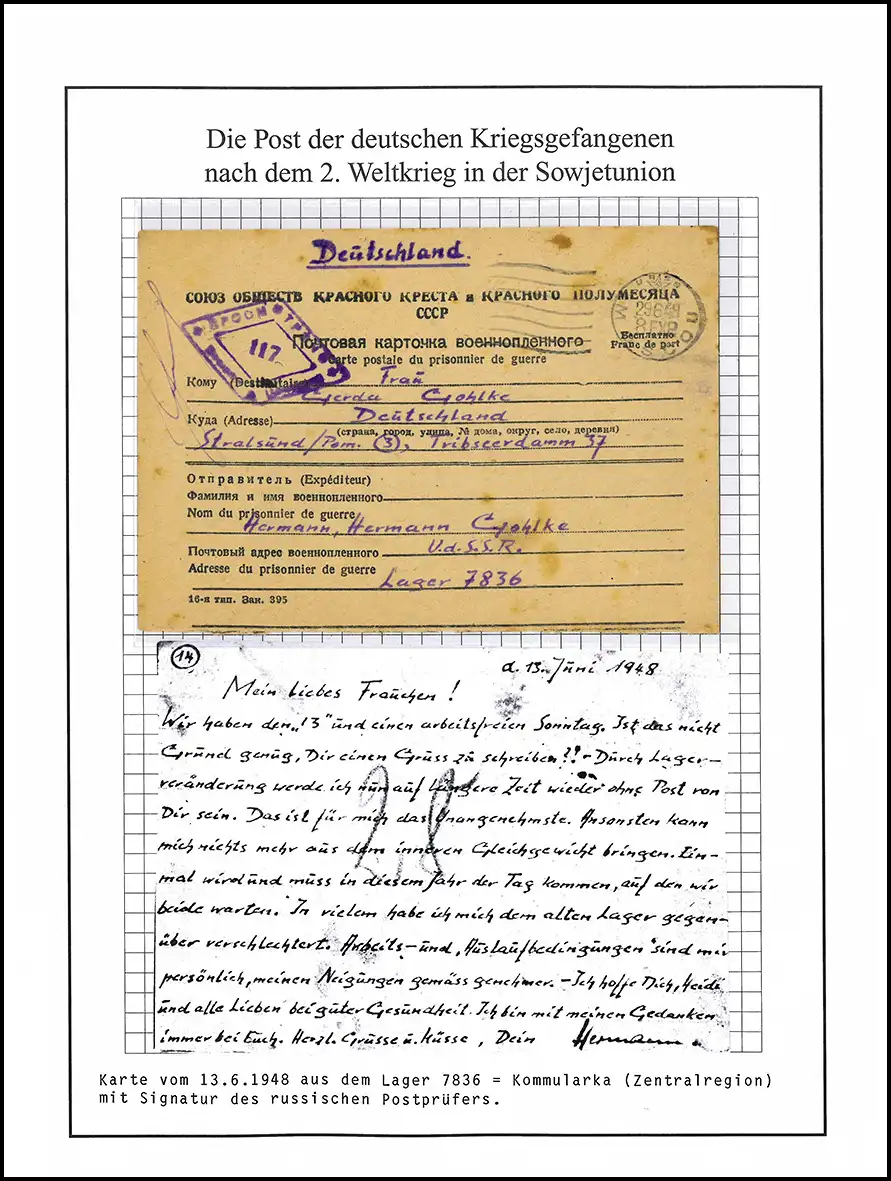 Die Post der deutschen Kriegsgefangenen
nach dem 2. Weltkrieg in der Sowjetunion
Deutschland.
СОЮЗ ОБЩЕСТВ КРАСНОГО КРЕСТА и КРАСНОГО ПОЛУМЕСЯЦА
СССР
117
Почтовая карточка военнопленного
Carte postale du prisonnier de guerre
Бесплатно
Franc de port
Кому (Destinataire) Frau
Gerda Gohlke
Куда (Adresse) Deutschland
(страна, город, улица, № дома, округ, село, деревня)
Stralsund/Pom. (3), Tribseerdamm 37
Отправитель (Expéditeur)
Фамилия и имя военнопленного
Nom du prisonnier de guerre
Hermann, Hermann Gohlke
Почтовый адрес военнопленного U.d.S.S.R.
Adresse du prisonnier de guerre
Lager 7836
16-я тип. Зак. 395
14
d. 13. Juni 1948
Mein liebes Frauchen!
Wir haben den „13" und einen arbeitsfreien Sonntag. Ist das nicht
Grund genug, Dir einen Gruss zu schreiben?! - Durch Lager-
veränderung werde ich nun auf längere Zeit wieder ohne Post von
Dir sein. Das ist für mich das Unangenehmste. Ansonsten kann
mich nichts mehr aus dem inneren Gleichgewicht bringen. Ein-
mal wird und muss in diesem Jahr der Tag kommen, auf den wir
beide warten. In vielem habe ich mich dem alten Lager gegen-
über verschlechtert. Arbeits- und „Auslaufbedingungen" sind mir
persönlich, meinen Neigungen gemäss genehmer. - Ich hoffe Dich, Heidi
und alle Lieben bei guter Gesundheit. Ich bin mit meinen Gedanken
immer bei Euch. Herzl. Grüsse u. Küsse, Dein Hermann.
Karte vom 13.6.1948 aus dem Lager 7836 = Kommularka (Zentralregion)
mit Signatur des russischen Postprüfers.